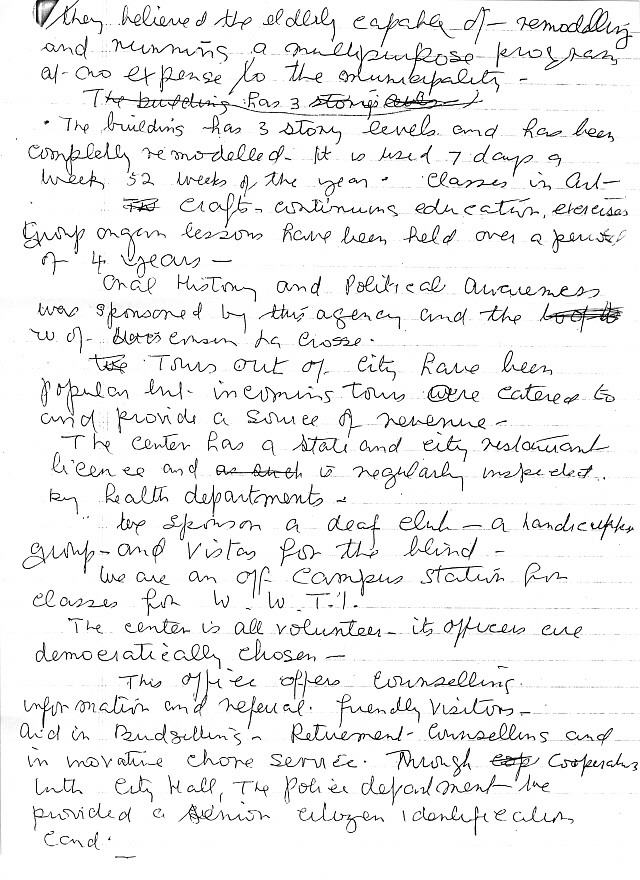 they believed the elderly capable of - remodelling
and running a multipurpose program
at - no expense to the municipality -
The building has 3 stories
• The building has 3 story levels and has been
completly remodelled - It is used 7 days a
week 52 weeks of the year. Classes in Art -
Crafts - continuing education, exercises
Group organ lessons have been held over a period
of 4 years -
Oral History and Political Awareness
was sponsored by this agency and the
U of - Wisconsin La Crosse.
Tours out of City have been
popular but - incoming tours were catered to
and provide a source of revenue -
The center has a state and city restaurant
licence and as such is regularly inspected.
by health departments -
We sponsor a deaf club - a handicapped
group - and Vistas for the blind -
We are an off Campus station for
classes for W. W. T. I.
The center is all volunteer - its officers are
democratically chosen -
This office offers Counselling.
information and referral. friendly Visitors -
Aid in Budgetting - Retirement - Counselling and
in inovative chore service. Through Cooperation
with City Hall, The Police department we
provided a senior citizen identification
Card.